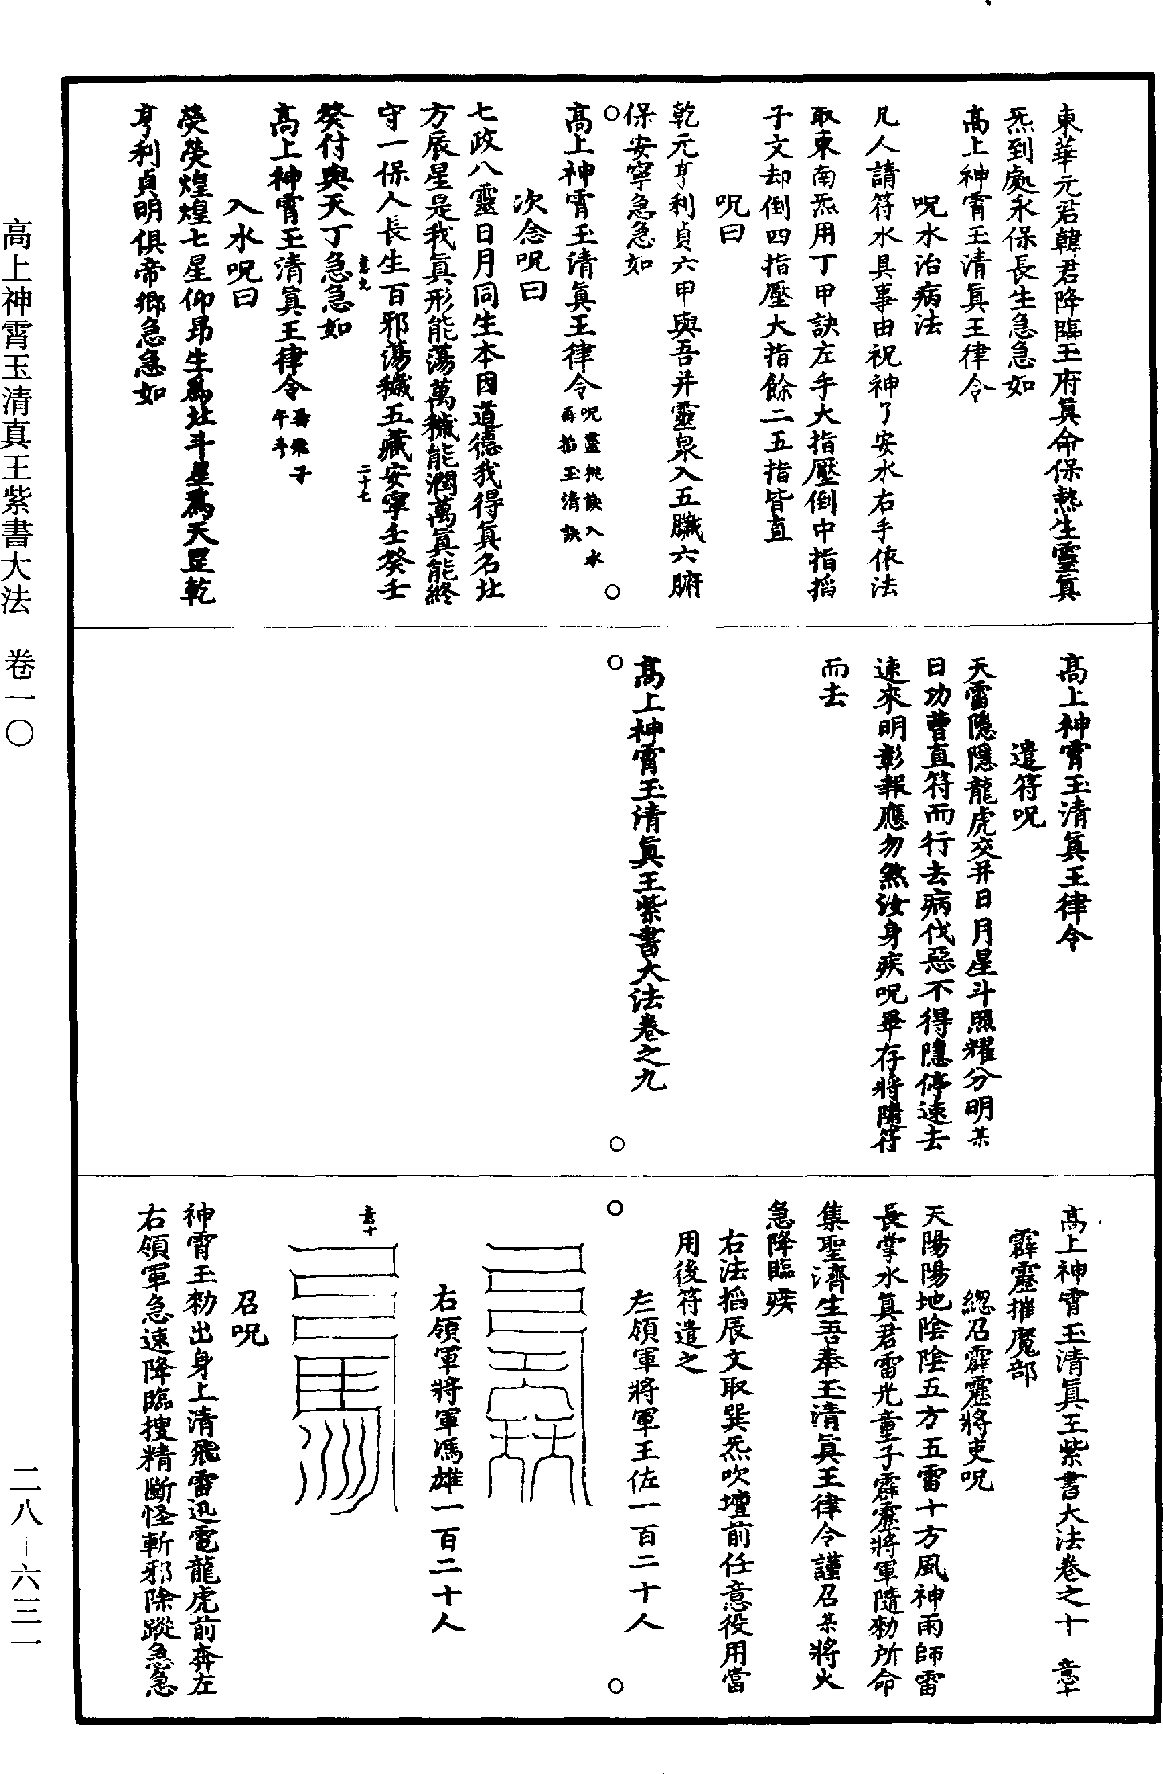 東華元君韓君降臨玉府真命保熟生靈真
炁到處永保長生急急如
高上神霄玉清真王律令
呪水治病法
凡人請符水具事由祝神了安水右手依法
取東南炁用丁甲訣左手大指壓倒中指掐
子文却倒四指壓大指餘二五指皆直
呪曰
乾元亨利貞六甲與吾并靈泉入五臟六腑
保安寧急急如
高上神霄玉清真王律令呪畫桃訣入水再掐玉清訣
次念呪曰
七政八靈日月同生本因道德我得真名北
方辰星是我真形能蕩萬穢能潤萬真能終
守一保人長生百邪蕩穢五藏安寧壬癸壬
意九
二十七
癸付與天丁急急如
高上神霄玉清真王律令
入水呪曰
熒熒煌煌七星仰昻生為北斗星為天罡乾
亨利貞明俱帝鄉急急如
高上神霄玉清真王律令
遣符呪
天雷隱隱龍虎交并日月星斗照耀分明某
日功曹直符而行去病伐惡不得隱停速去
速來明彰報應勿煞汝身疾呪畢存將隨符
而去
高上神霄玉清真王紫書大法卷之九
高上神霄玉清真王紫書大法卷之十 意十
霹靂摧魔部
總召霹靂將吏呪
天陽陽地陰陰五方五雷十方風神雨師雷
長掌水真君雷光童子霹靂將軍隨勑所命
集聖濟生吾奉玉清真王律令謹召某將火
急降臨疾
右法掐辰文取巽炁吹壇前任意役用當
用後符遣之
左領軍將軍王佐一百二十人
右領軍將軍馮雄一百二十人
意十
召呪
神霄玉勑出身上清飛雷迅電龍虎前奔左
右領軍急速降臨搜精斷怪斬邪除蹤急急
高上神霄玉清真王紫書大法 卷一〇
二八－六三一